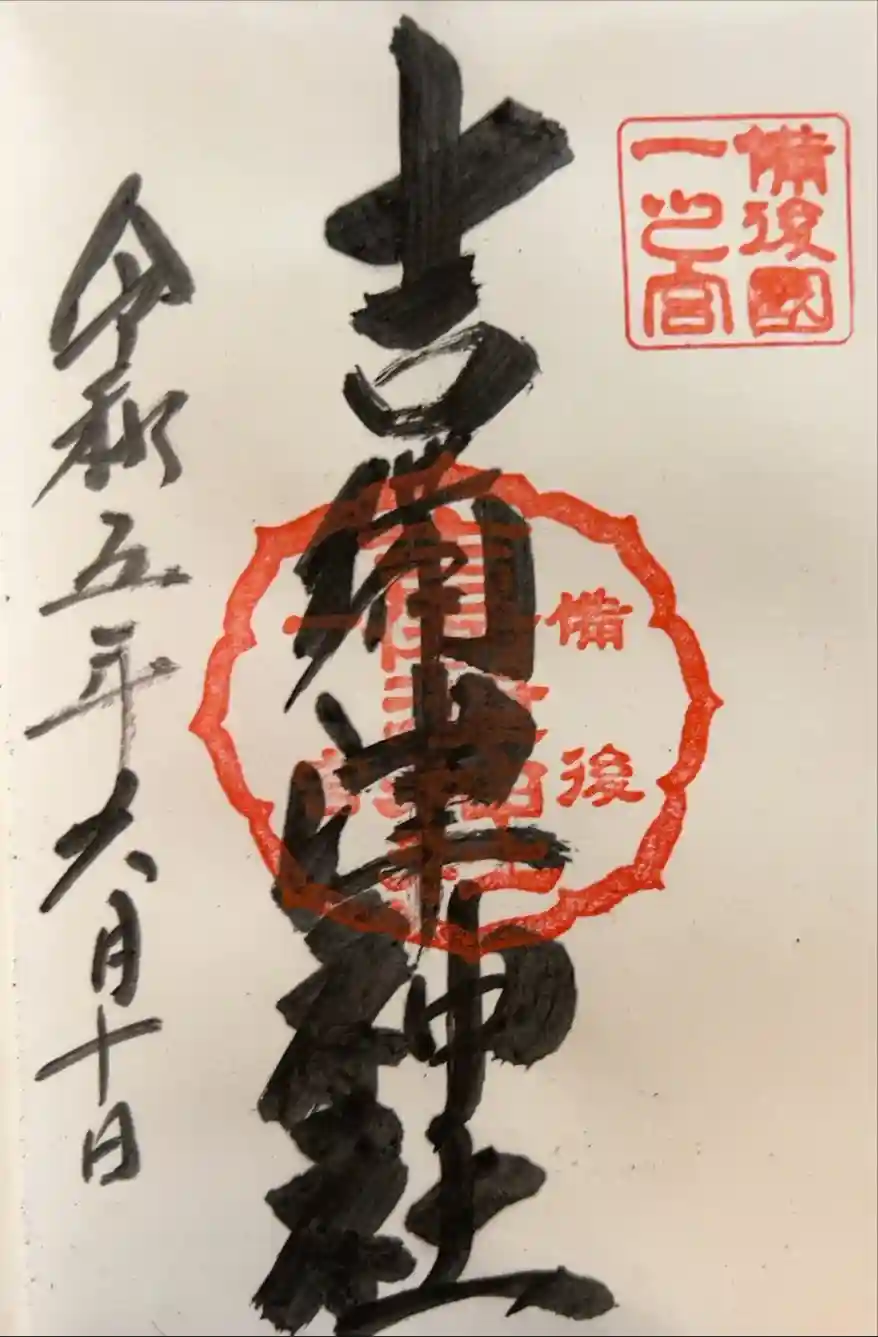 備後國
一之宮
備後
一宮
吉備津神社
令和五年六月十日